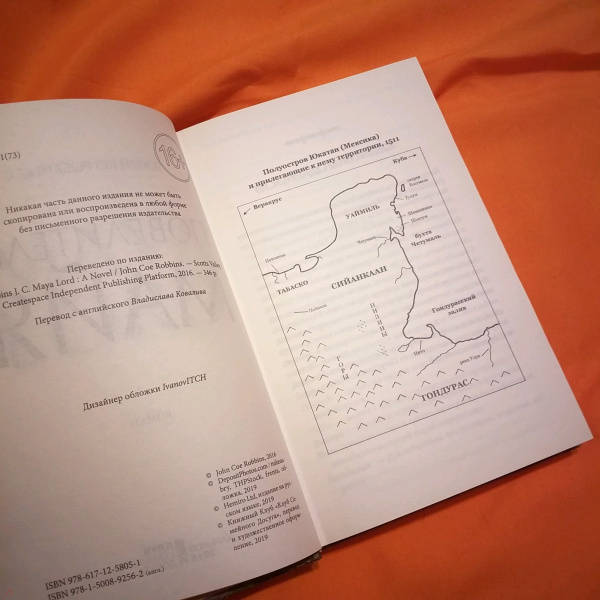 І(73)
16+
Никакая часть данного издания не может быть
скопирована или воспроизведена в любой форме
без письменного разрешения издательства
Переведено по изданию:
ins J. C. Maya Lord : A Novel / John Coe Robbins. — Scotts Valley
Createspace Independent Publishing Platform, 2016. — 346 p.
Перевод с английского Владислава Ковалива
Дизайнер обложки IvanovITCH
© John Coe Robbins, 2016
© DepositPhotos.com /
bry, THPStock, frenta, об-
ложка, 2019
© Hemiro Ltd, издание на рус-
ском языке, 2019
© Книжный Клуб «Клуб Се-
мейного Досуга», перевод
и художественное оформ-
ление, 2019
ISBN 978-617-12-5805-1
ISBN 978-1-5008-9256-2 (англ.)
Полуостров Юкатан (Мексика)
и прилегающие к нему территории, 1511
Куба
Веракрус
остров
Косумель
Тулум
УАЙМИЛЬ
Четумаль
бухта
Четумаль
ТАБАСКО
СИЙАНКААН
НИЗИНЫ
Гондурасский
залив
ГОРЫ
Нито
река Улуа
ГОНДУРАС